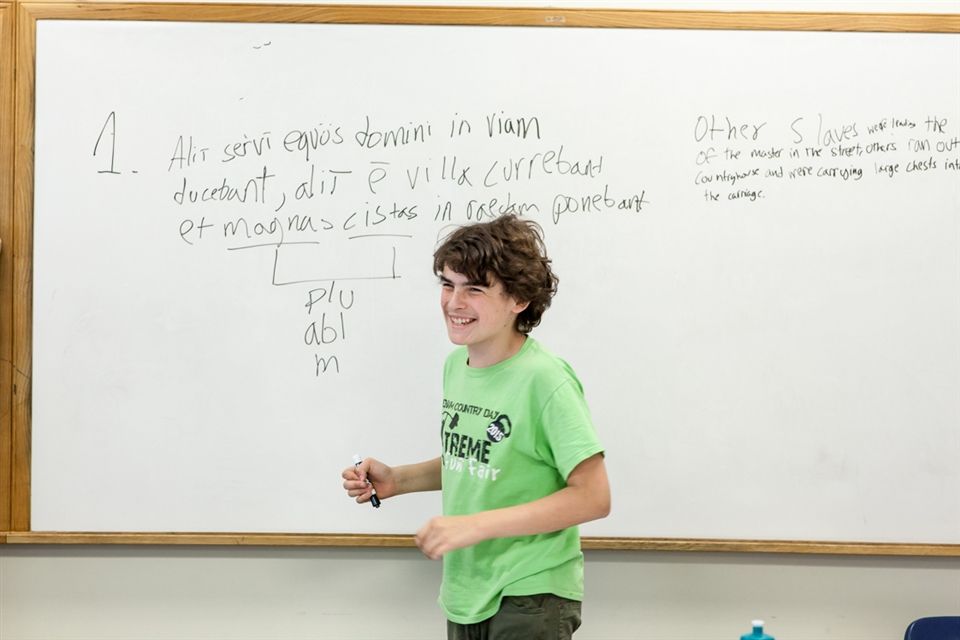 1. Aliī servī equōs domini in viam
ducebant, aliī ē villa currebant
et magnas cistas in raedam ponebant
plu
abl
m
Other slaves were leading the
of the master in the street, others ran out
countryhouse and were carrying large chests into
the carriage.
COUNTRY DAY
2015
TREME
Fun Fair